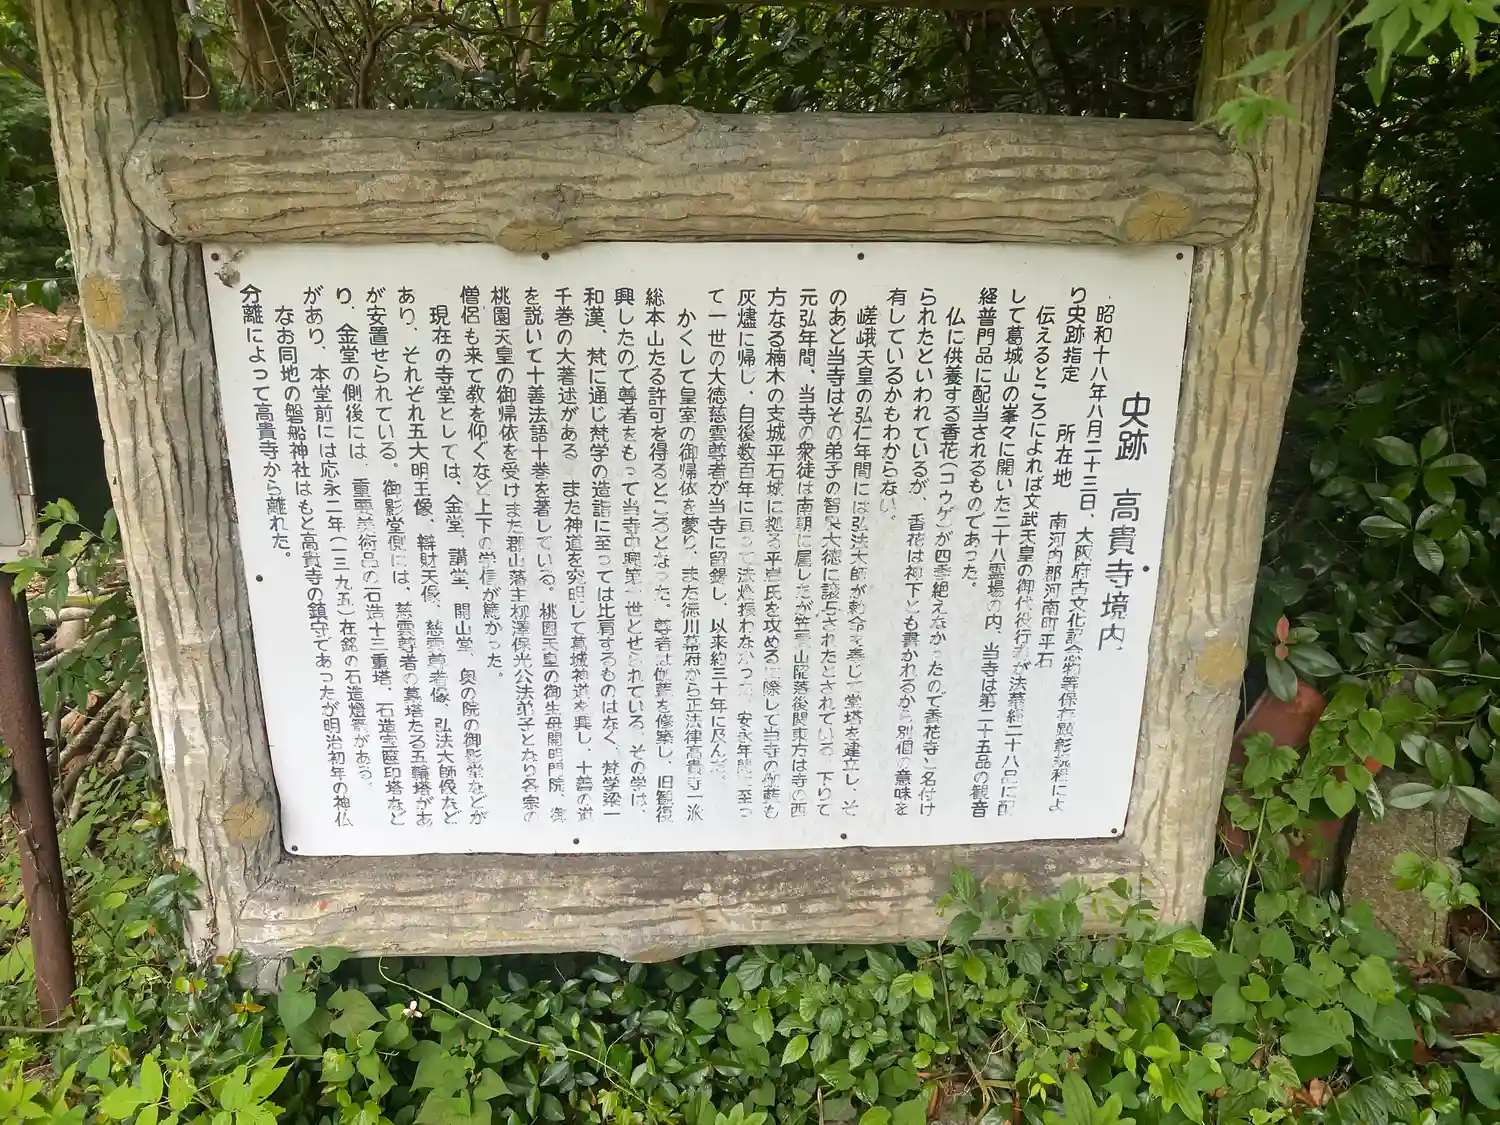 史跡 高貴寺境内
昭和十八年八月二十三日、大阪府古文化記念物等保存顕彰規程によ
り史跡指定 所在地 南河内郡河南町平石
伝えるところによれば文武天皇の御代役行者が法華経二十八品に配
して葛城山の峯々に開いた二十八霊場の内、当寺は第二十五品の観音
経普門品に配当されるものであった。
仏に供養する香花(コウゲ)が四季絶えなかったので香花寺と名付け
られたといわれているが、香花は神下とも書かれるから別個の意味を
有しているかもわからない。
嵯峨天皇の弘仁年間には弘法大師が勅命を奉じて堂塔を建立し、そ
のあと当寺はその弟子の智泉大徳に譲与されたとされている。下りて
元弘年間、当寺の衆徒は南朝に属したが笠置山陥落後関東方は寺の西
方なる楠木の支城平石城に拠る平岩氏を攻める際して当寺の伽藍も
灰燼に帰し、自後数百年に亘って法燈振わなかった。安永年間に至っ
て一世の大徳慈雲尊者が当寺に留錫し、以来約三十年に及んだ。
かくして皇室の御帰依を蒙り、また徳川幕府から正法律高貴寺一派
総本山たる許可を得るところとなった。尊者は伽藍を修築し、旧観復
興したので尊者をもって当寺中興第一世とせられている。その学は、
和漢、梵に通じ梵学の造詣に至っては比肩するものはなく、梵学梁一
千巻の大著述がある。また神道を究明して葛城神道を興し、十善の道
を説いて十善法語十巻を著している。桃園天皇の御生母開明門院、御
桃園天皇の御帰依を受けまた郡山藩主柳澤保光公法弟子となり各宗の
僧侶も来て教を仰ぐなど上下の学信が篤かった。
現在の寺堂としては、金堂、講堂、開山堂、奥の院の御影堂などが
あり、それぞれ五大明王像、辯財天像、慈雲尊者像、弘法大師像など
が安置せられている。御影堂側には、慈雲尊者の墓塔たる五輪塔があ
り、金堂の側後には、重要美術品の石造十三重塔、石造宝篋印塔など
があり、本堂前には応永二年(一三九五)在銘の石造燈籠がある。
なお同地の磐船神社はもと高貴寺の鎮守であったが明治初年の神仏
分離によって高貴寺から離れた。